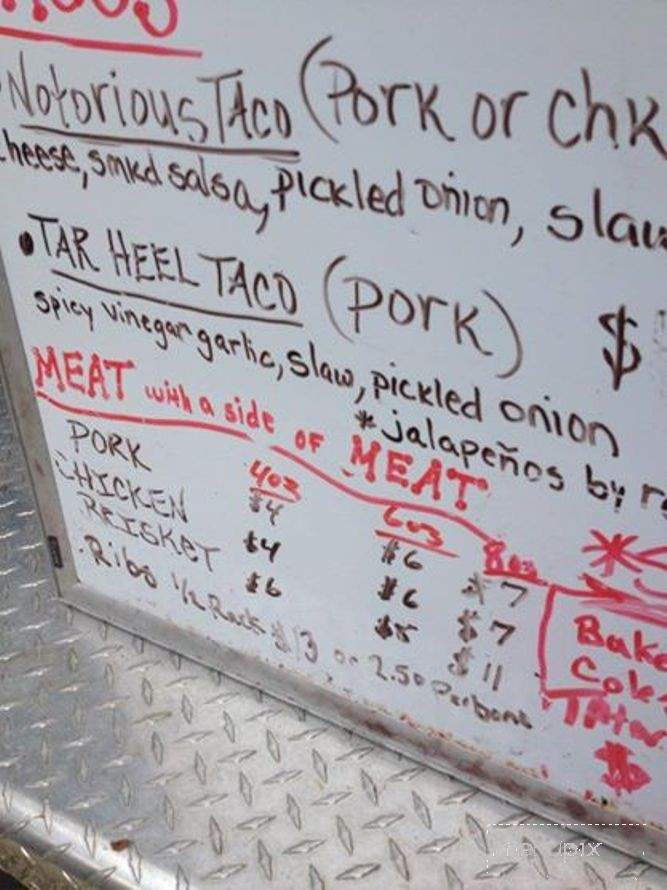 Notorious Taco (Pork or Chk
cheese, smkd salsa, pickled onion, slaw
• TAR HEEL TACO (PORK) $
spicy vinegar garlic, slaw, pickled onion
*jalapeños by r
MEAT with a side OF MEAT
4oz 6oz 8oz
PORK $4 $6 $7
CHICKEN $4 $6 $7
BRISKET $6 $8 $11
. Ribs 1/2 Rack $13 or 2.50 Per bone
Bake
Cole
Tater
$